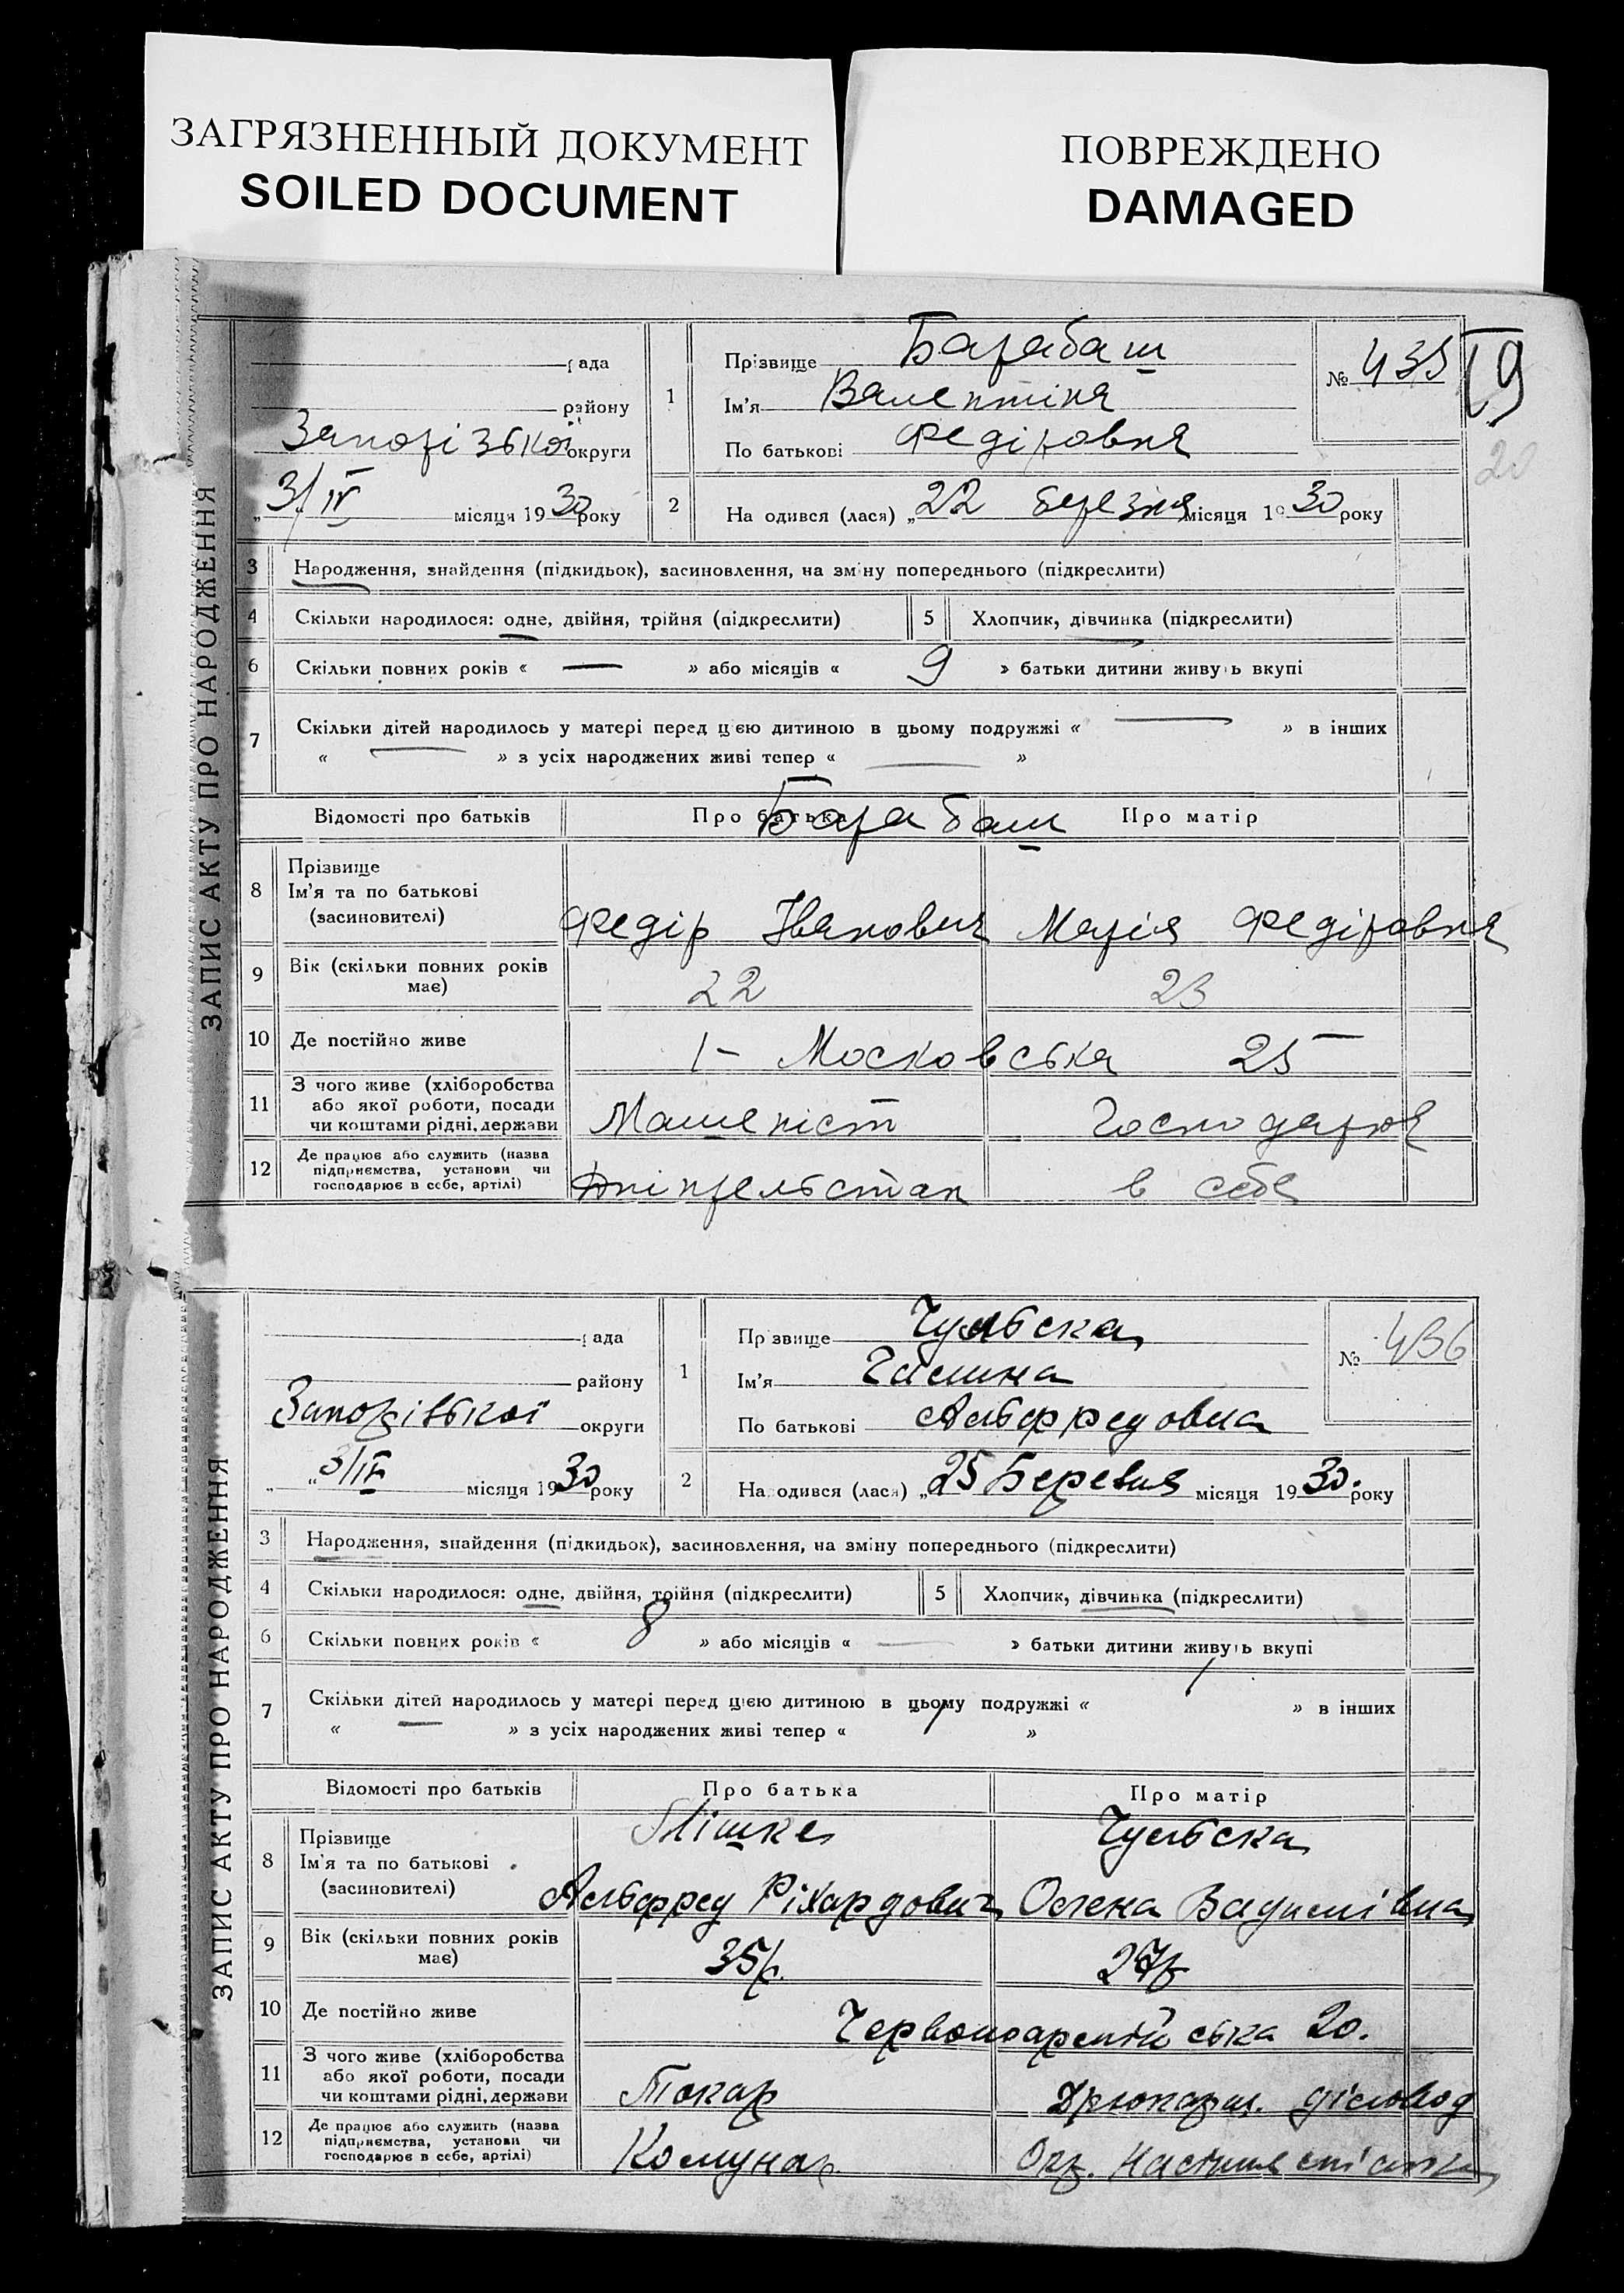 ЗАГРЯЗНЕННЫЙ ДОКУМЕНТ
SOILED DOCUMENT
ПОВРЕЖДЕНО
DAMAGED
19
20
ЗАПИС АКТУ ПРО НАРОДЖЕННЯ
рада
району
Запорізької округи
„3/IV місяця 1930 року
1 Прізвище Барабаш
Ім'я Валентіна
По батькові Федіровна
№ 435
2 Народився (лася) „22 березня місяця 1930 року
3 Народження, знайдення (підкидьок), засиновлення, на зміну попереднього (підкреслити)
4 Скільки народилося: одне, двійня, трійня (підкреслити) 5 Хлопчик, дівчинка (підкреслити)
6 Скільки повних років « — » або місяців « 9 » батьки дитини живуть вкупі
7 Скільки дітей народилось у матері перед цією дитиною в цьому подружжі « — » в інших
« — » з усіх народжених живі тепер « — »
Відомості про батьків Про батька Про матір
Барабаш
8 Прізвище
Ім'я та по батькові
(засиновителі)
Федір Іванович Марія Федіровна
9 Вік (скільки повних років
має) 22 23
10 Де постійно живе 1– Московська 25
11 З чого живе (хліборобства
або якої роботи, посади
чи коштами рідні, держави
Машеніст Господарює
12 Де працює або служить (назва
підприємства, установи чи
господарює в себе, артілі)
Дніпрельстан в себе
ЗАПИС АКТУ ПРО НАРОДЖЕННЯ
рада
району
Запорізької округи
„3/IV місяця 1930 року
1 Прізвище Чульска
Ім'я Галина
По батькові Альфредовна
№ 436
2 Народився (лася) „25 Березня місяця 1930. року
3 Народження, знайдення (підкидьок), засиновлення, на зміну попереднього (підкреслити)
4 Скільки народилося: одне, двійня, трійня (підкреслити) 5 Хлопчик, дівчинка (підкреслити)
6 Скільки повних років « 8 » або місяців « — » батьки дитини живуть вкупі
7 Скільки дітей народилось у матері перед цією дитиною в цьому подружжі « 1 » в інших
« — » з усіх народжених живі тепер « 1 »
Відомості про батьків Про батька Про матір
8 Прізвище
Ім'я та по батькові
(засиновителі)
Чульска
Альфред Ріхардович Олена
9 Вік (скільки повних років
має) 35 р. 27 р
10 Де постійно живе Червоноармійська 20.
11 З чого живе (хліборобства
або якої роботи, посади
чи коштами рідні, держави
Токар діловод
12 Де працює або служить (назва
підприємства, установи чи
господарює в себе, артілі)
Комунар